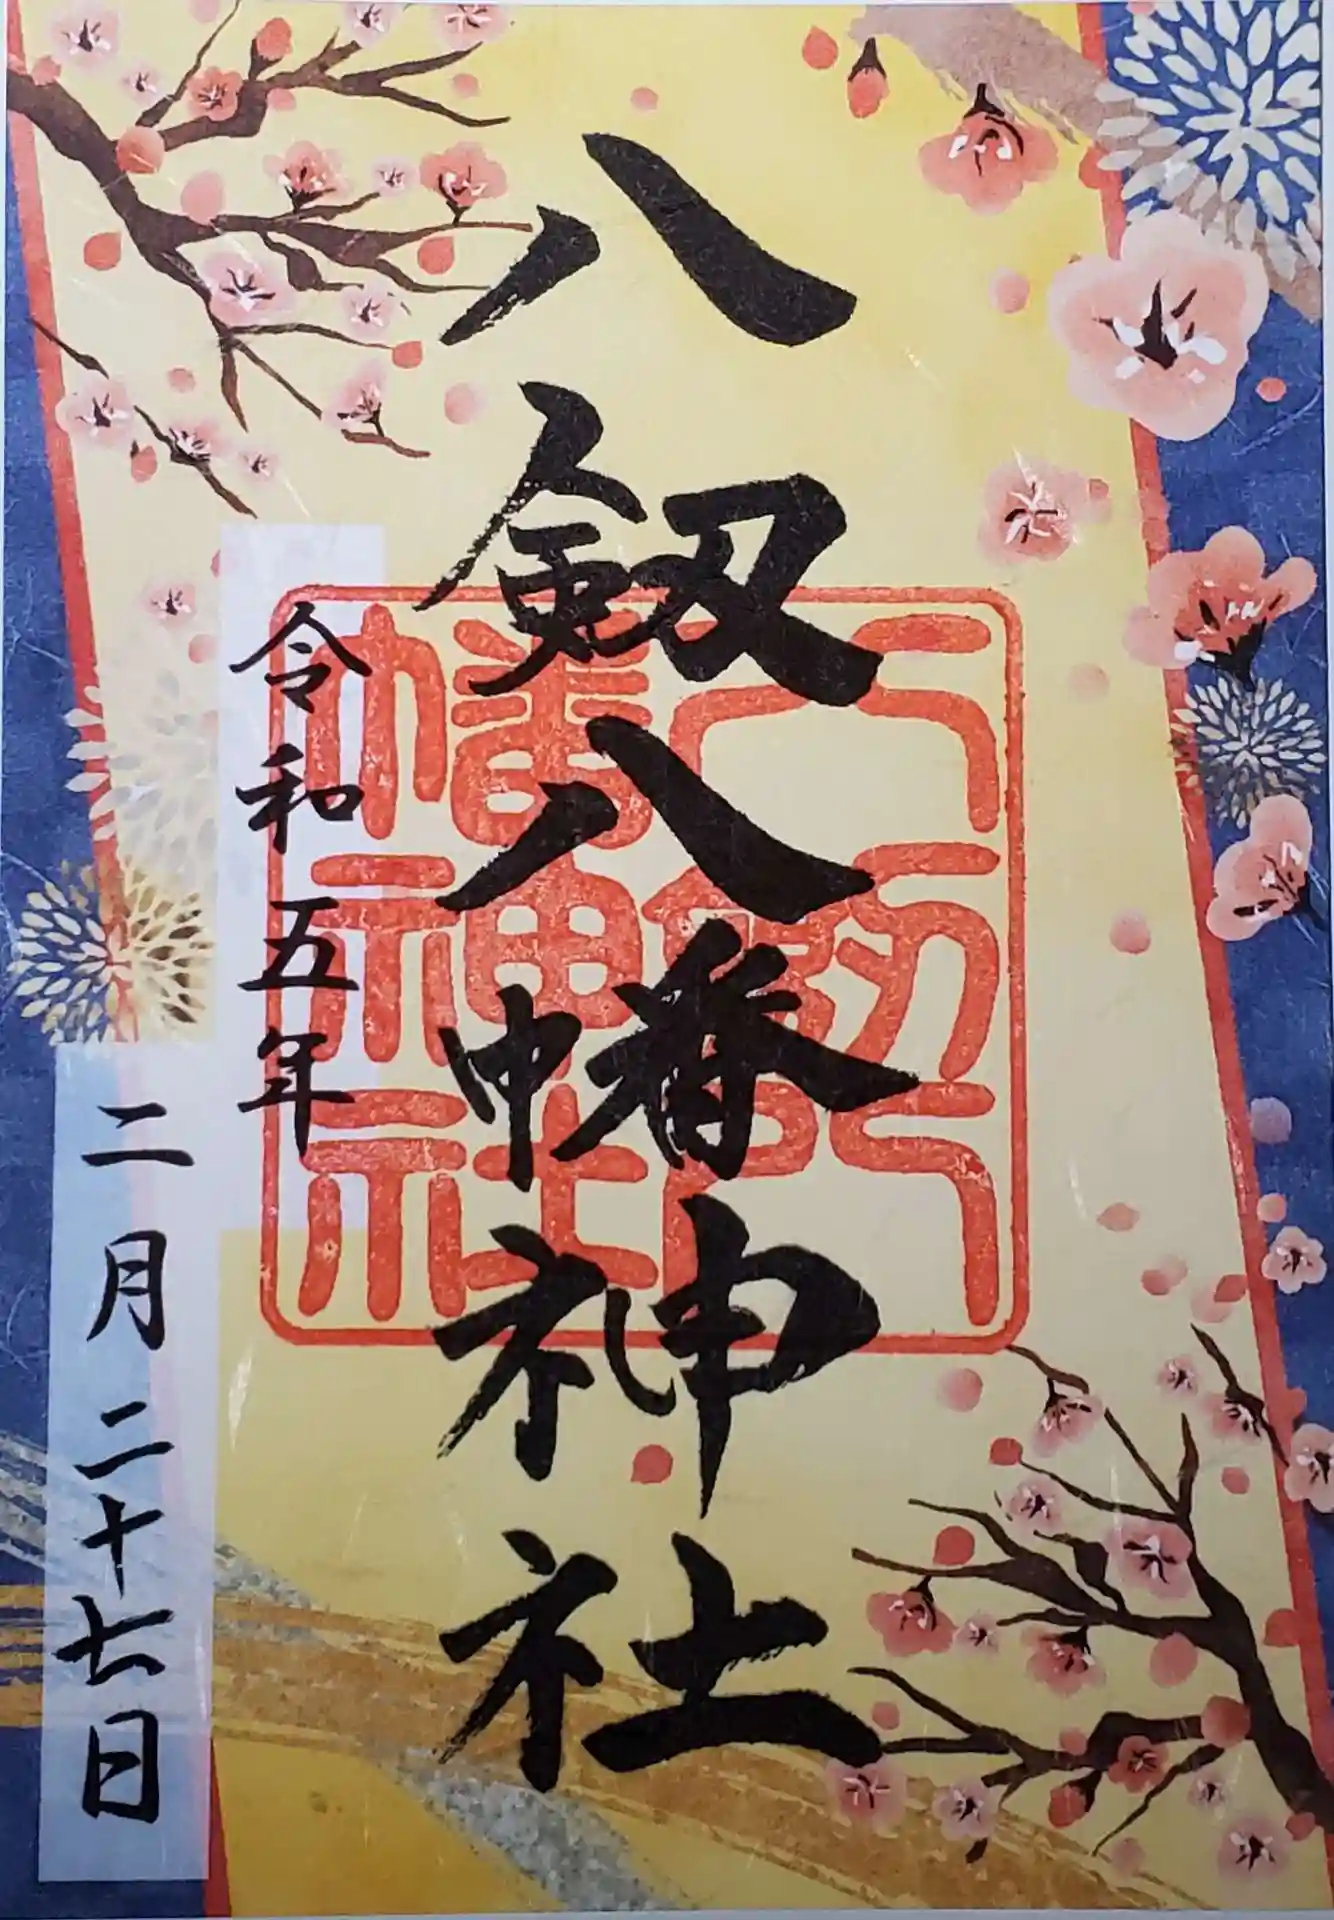 八剱八幡神社
令和五年
二月二十七日
八剱八幡神社